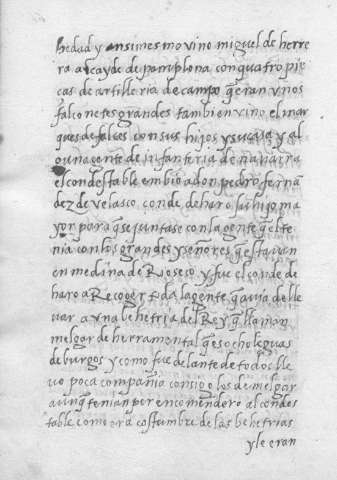 hedad y ansimesmo vino miguel de herre
ra alcayde de pamplona con quatro pie
cas de artilleria de campo q̃ eran vnos
falconetes grandes tambien vino el mar
ques de falces con sus hijos y su casa y al
guna gente de infanteria de navarra
el condestable embio a don pedro ferna̅
dez de velasco conde de haro su hijo ma
yor para q̃ se juntase con la gente q̃ el te
nia con los grandes y señores q̃ estauan
en medina de Rioseco y fue el conde de
haro a Recoger toda la gente q̃ auia de lle
uar a vna behetria del Rey q̃ llaman
melgar de herramental q̃ es ocho leguas
de burgos y como fue delante de todos lle
uo poca compañia consigo los de melgar
aunq̃ tenian por encomendero al condes
table como era costumbre de las behetrias
y le eran